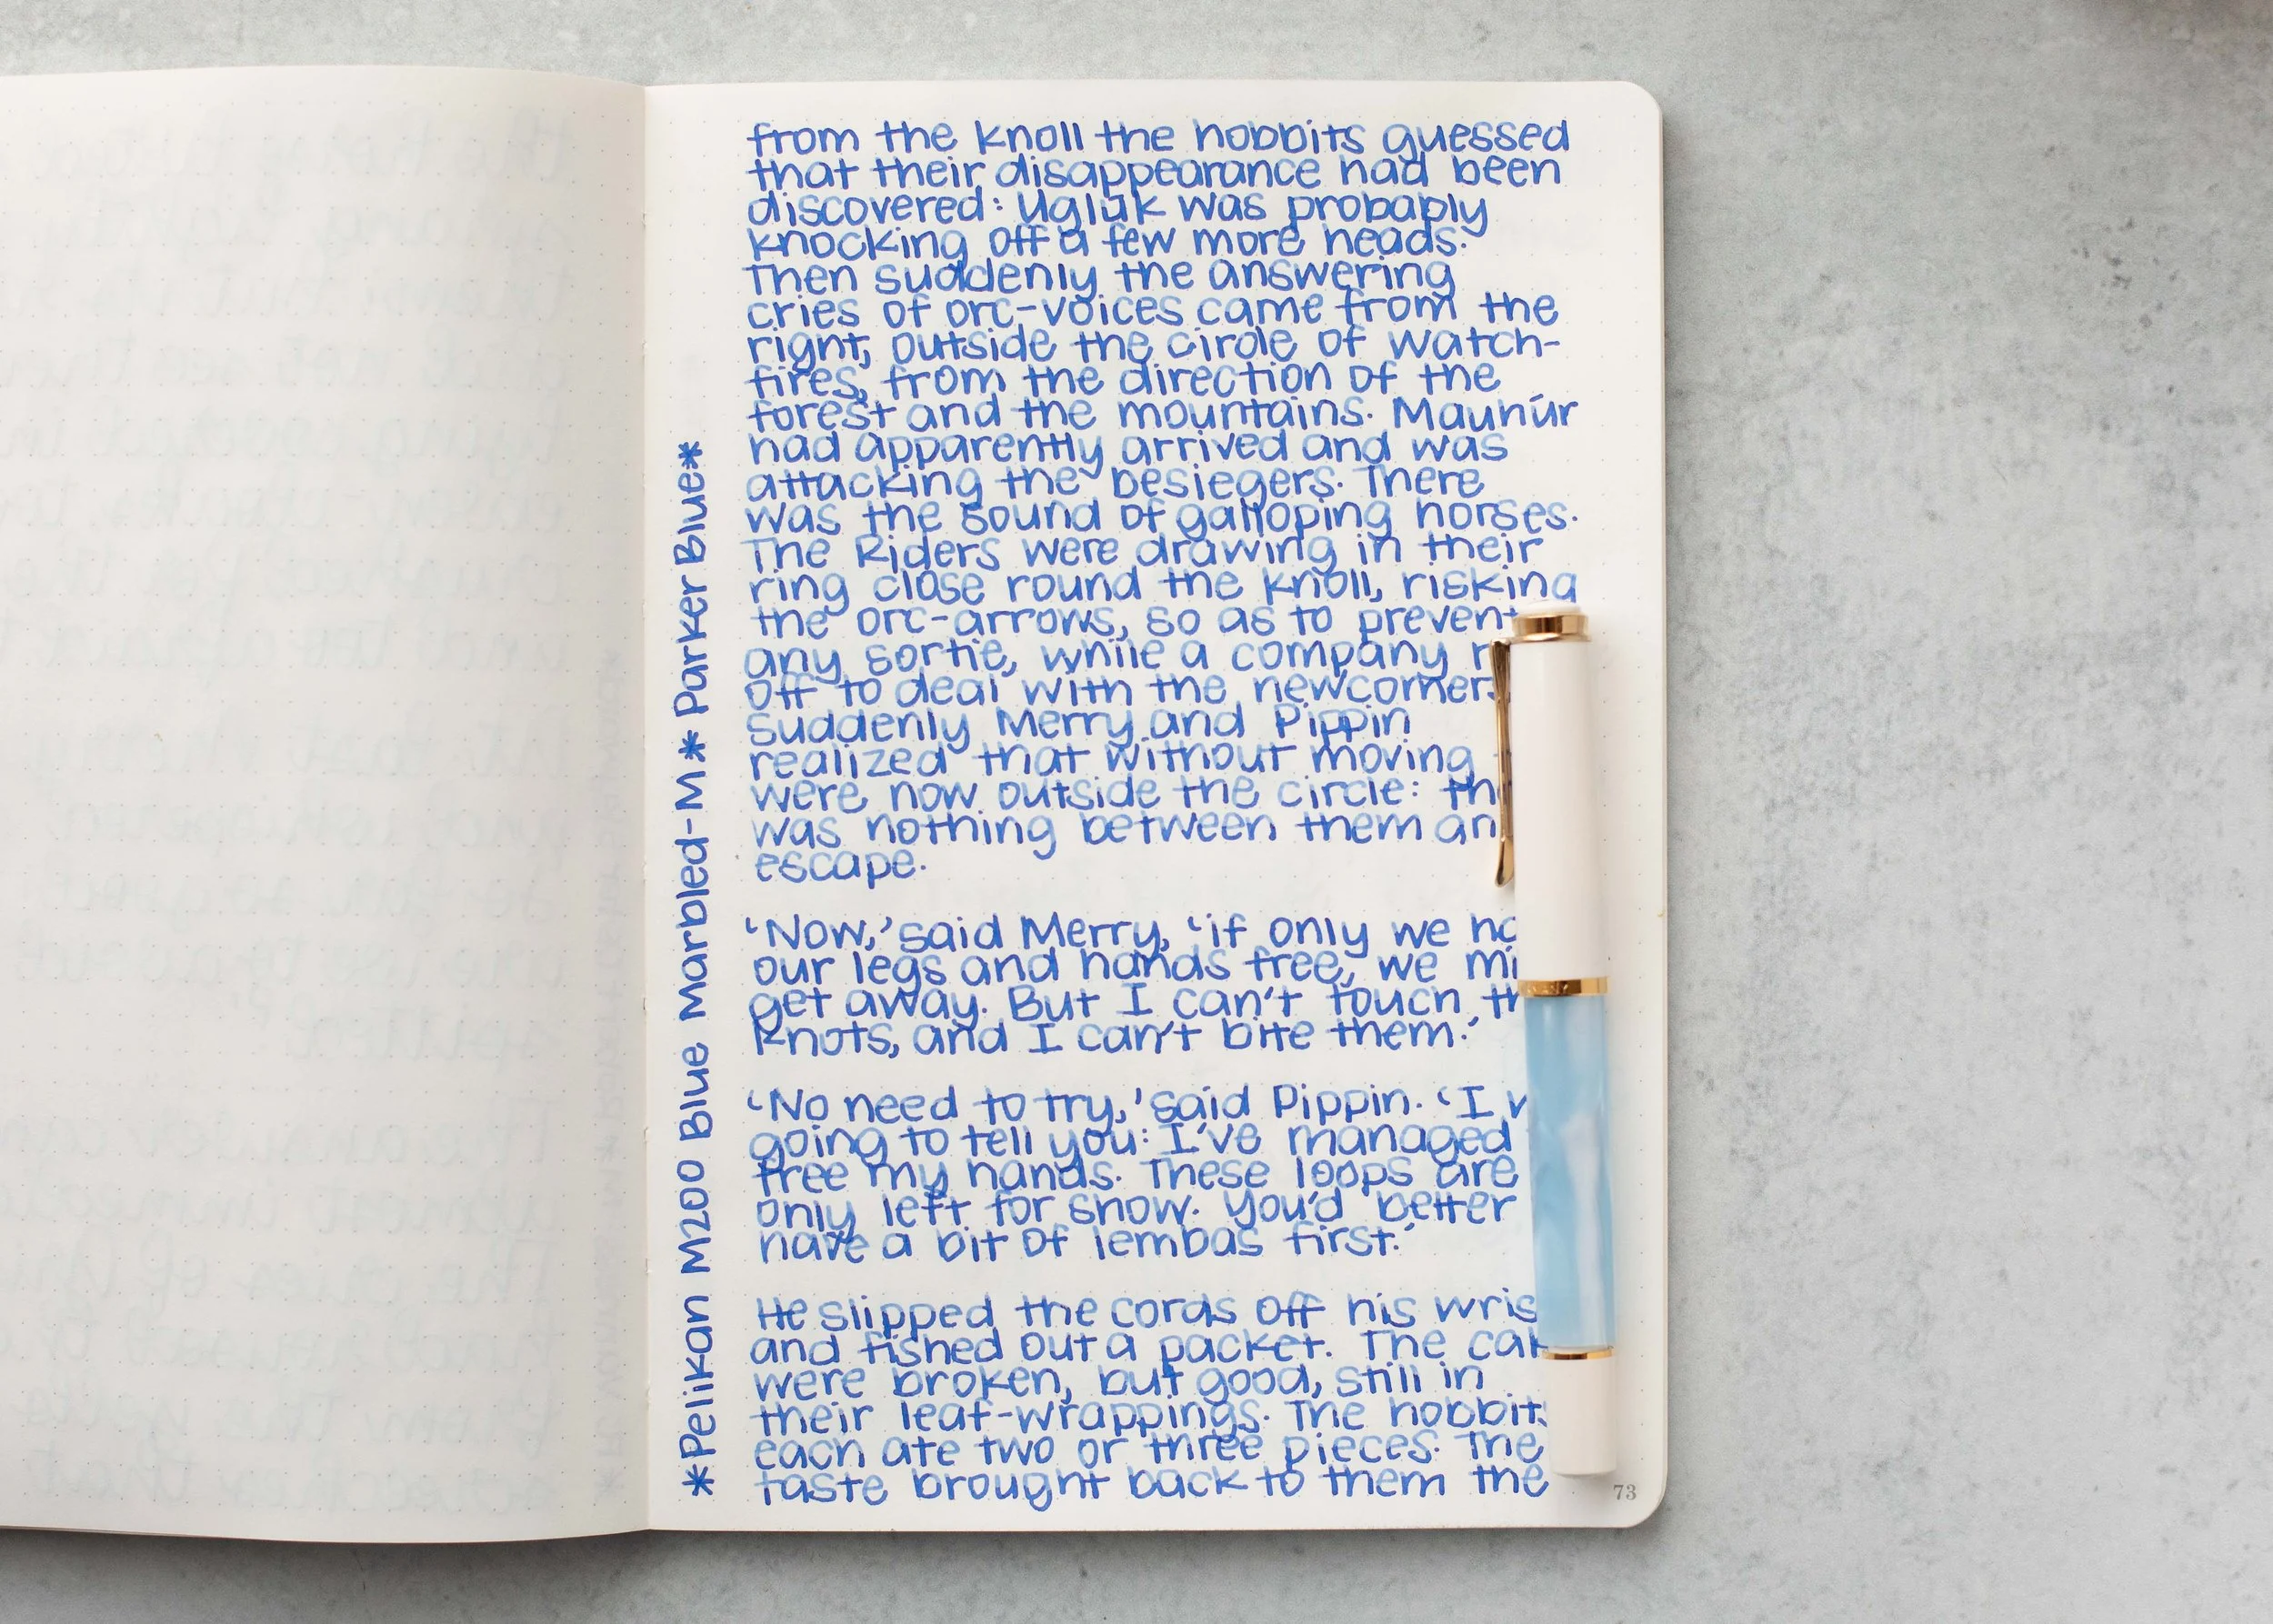 from the knoll the hobbits guessed
that their disappearance had been
discovered: Uglúk was probably
knocking off a few more heads.
Then suddenly the answering
cries of orc-voices came from the
right, outside the circle of watch-
fires, from the direction of the
forest and the mountains. Mauhúr
had apparently arrived and was
attacking the besiegers. There
was the sound of galloping horses.
The Riders were drawing in their
ring close round the knoll, risking
the orc-arrows, so as to prevent
any sortie, while a company
off to deal with the newcomers
suddenly Merry and Pippin
realized that without moving
were now outside the circle:
was nothing between them
escape.
‘Now,’ said Merry, ‘if only we
our legs and hands free, we
get away. But I can't touch
knots, and I can't bite them.’
‘No need to try,’ said Pippin. ‘I
going to tell you: I've managed
free my hands. These loops are
only left for show. You'd better
have a bit of lembas first.’
He slipped the cords off his
and fished out a packet. The
were broken, but good, still in
their leaf-wrappings. The hobbits
each ate two or three pieces. The
taste brought back to them the
*Pelikan M200 Blue Marbled-M* Parker Blue*
73